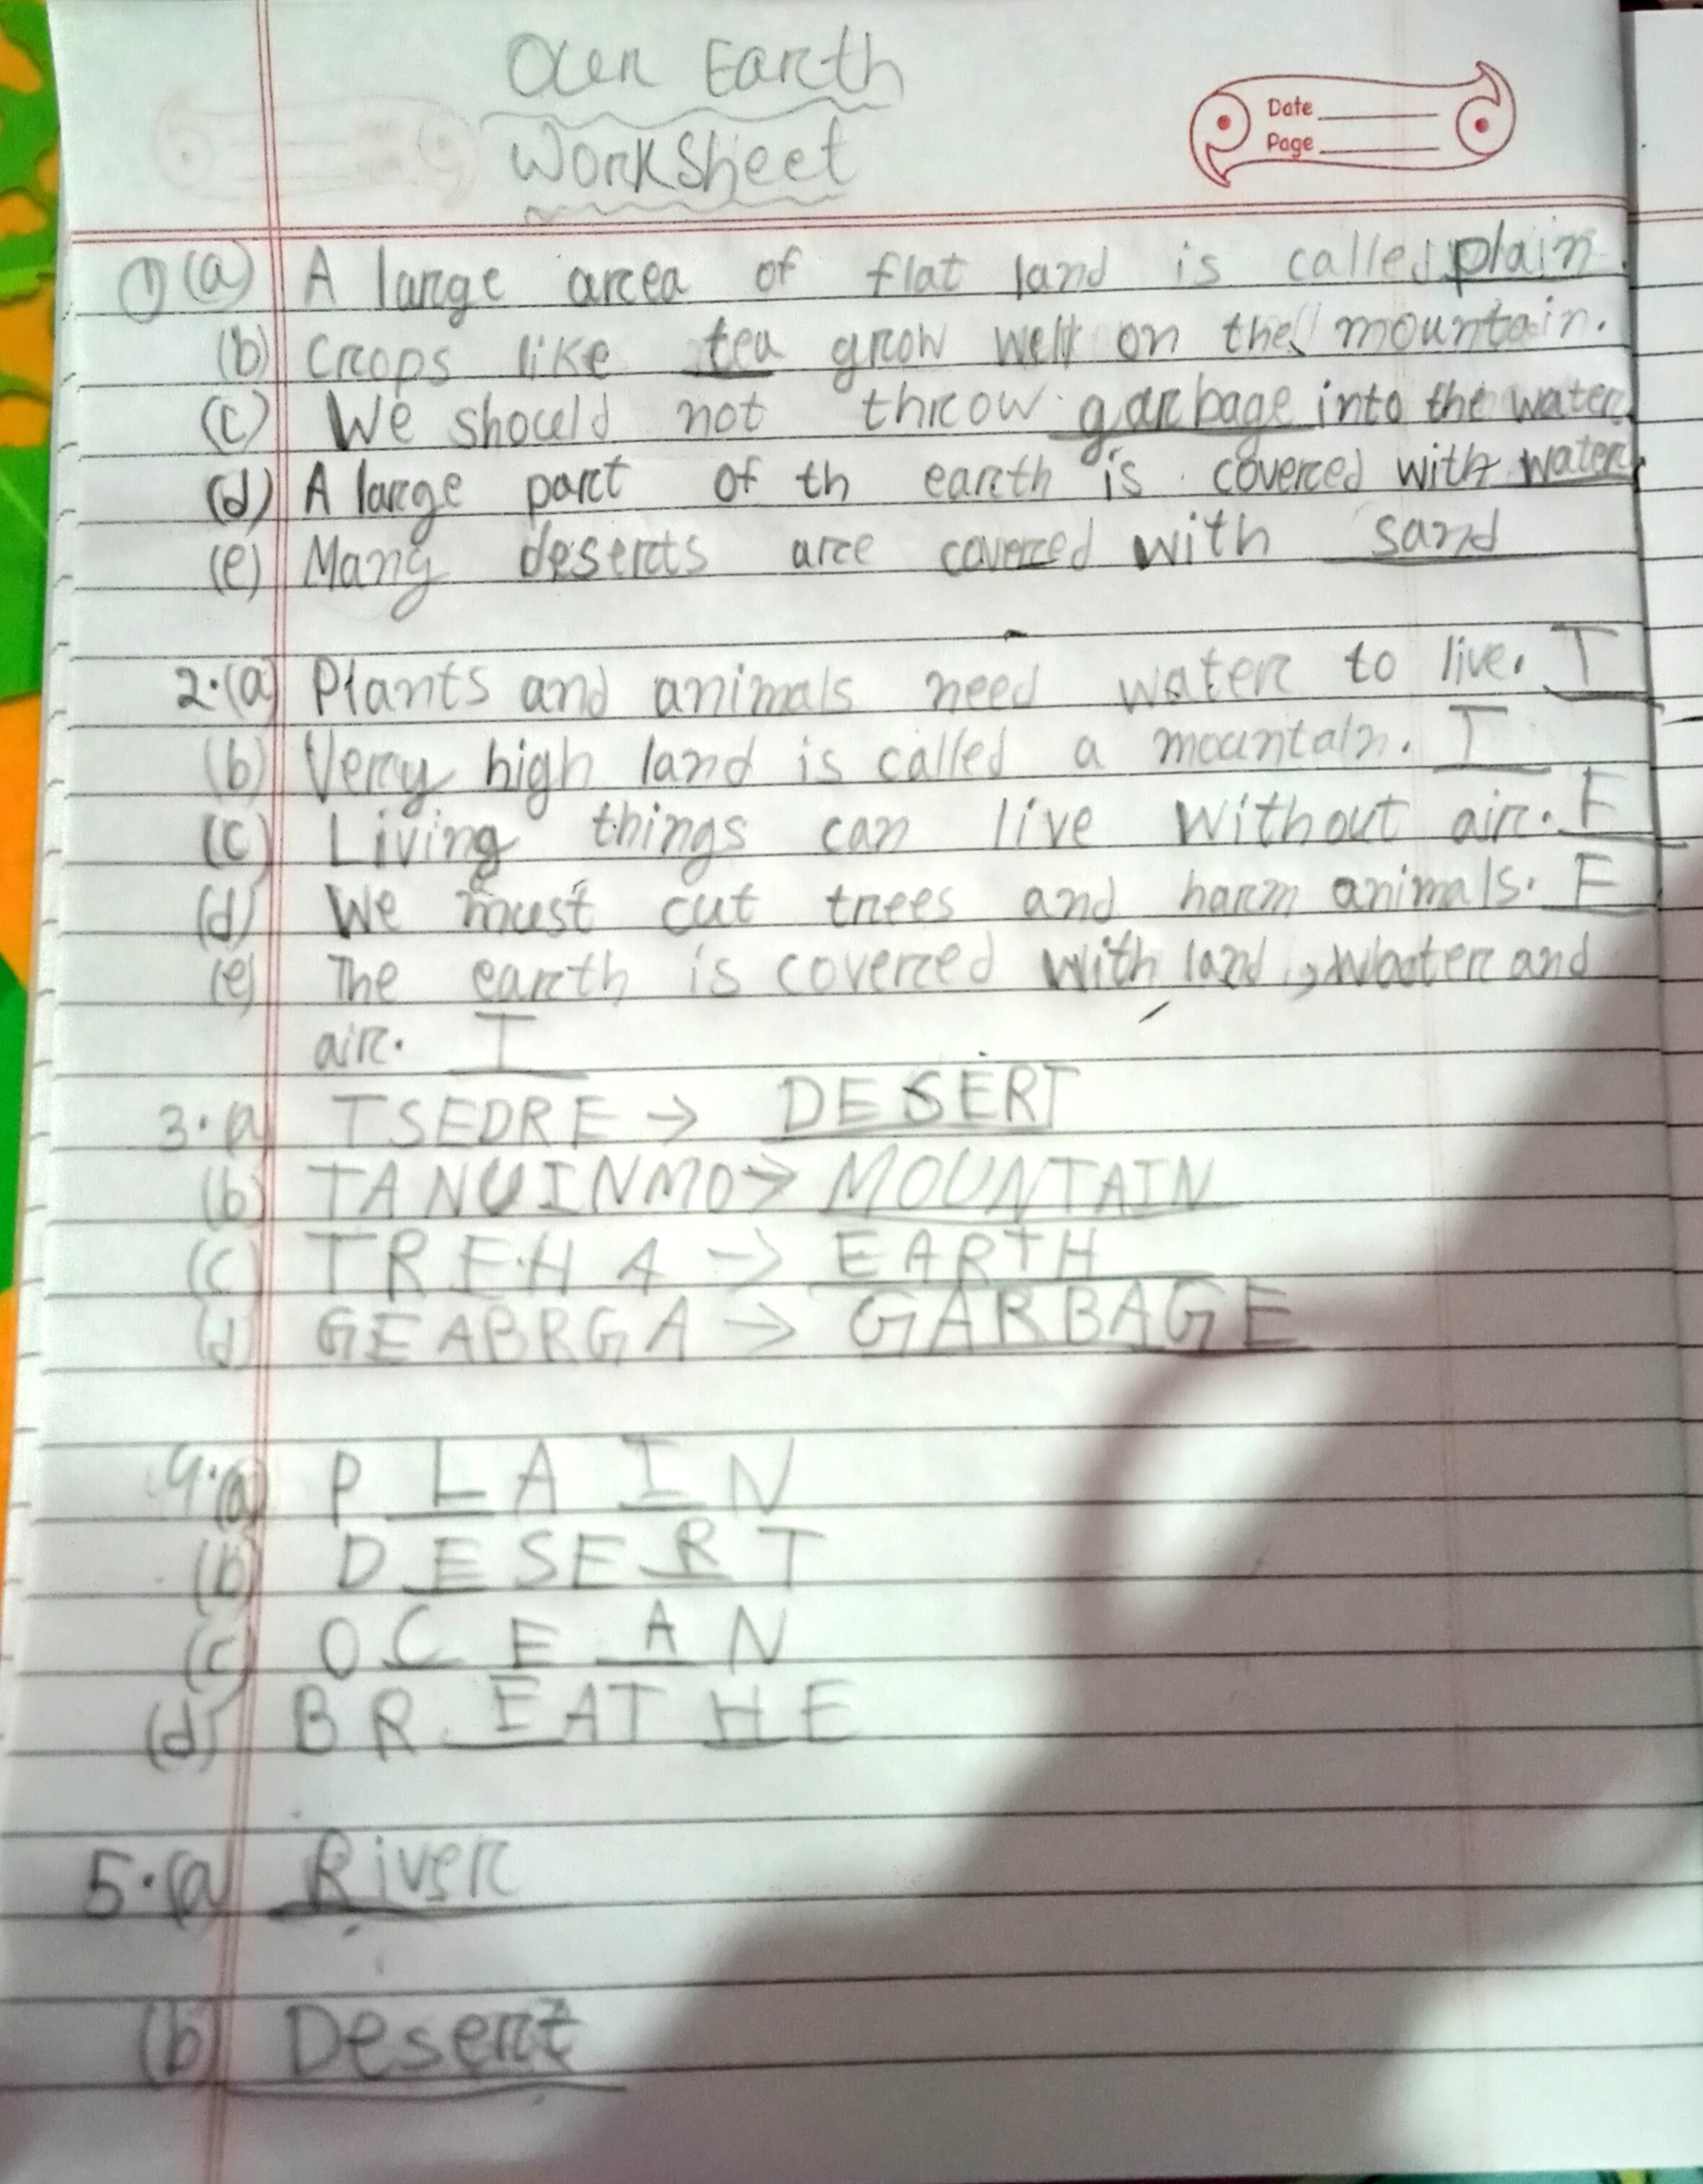 Our Earth
Worksheet
Date
Page
1 (a) A large area of flat land is called plain.
(b) Crops like tea grow well on the mountain.
(c) We should not throw garbage into the water.
(d) A large part of th earth is covered with water.
(e) Many deserts are covered with sand
2.(a) Plants and animals need water to live. T
(b) Very high land is called a mountain. T
(c) Living things can live without air. F
(d) We must cut trees and harm animals. F
(e) The earth is covered with land, water and
air. T
3.a) TSEDRE → DESERT
(b) TANUINMO → MOUNTAIN
(c) TREHA → EARTH
(d) GEABRGA → GARBAGE
4.(a) P L A I N
(b) D E S E R T
(c) O C E A N
(d) B R E A T H E
5.(a) River
(b) Desert